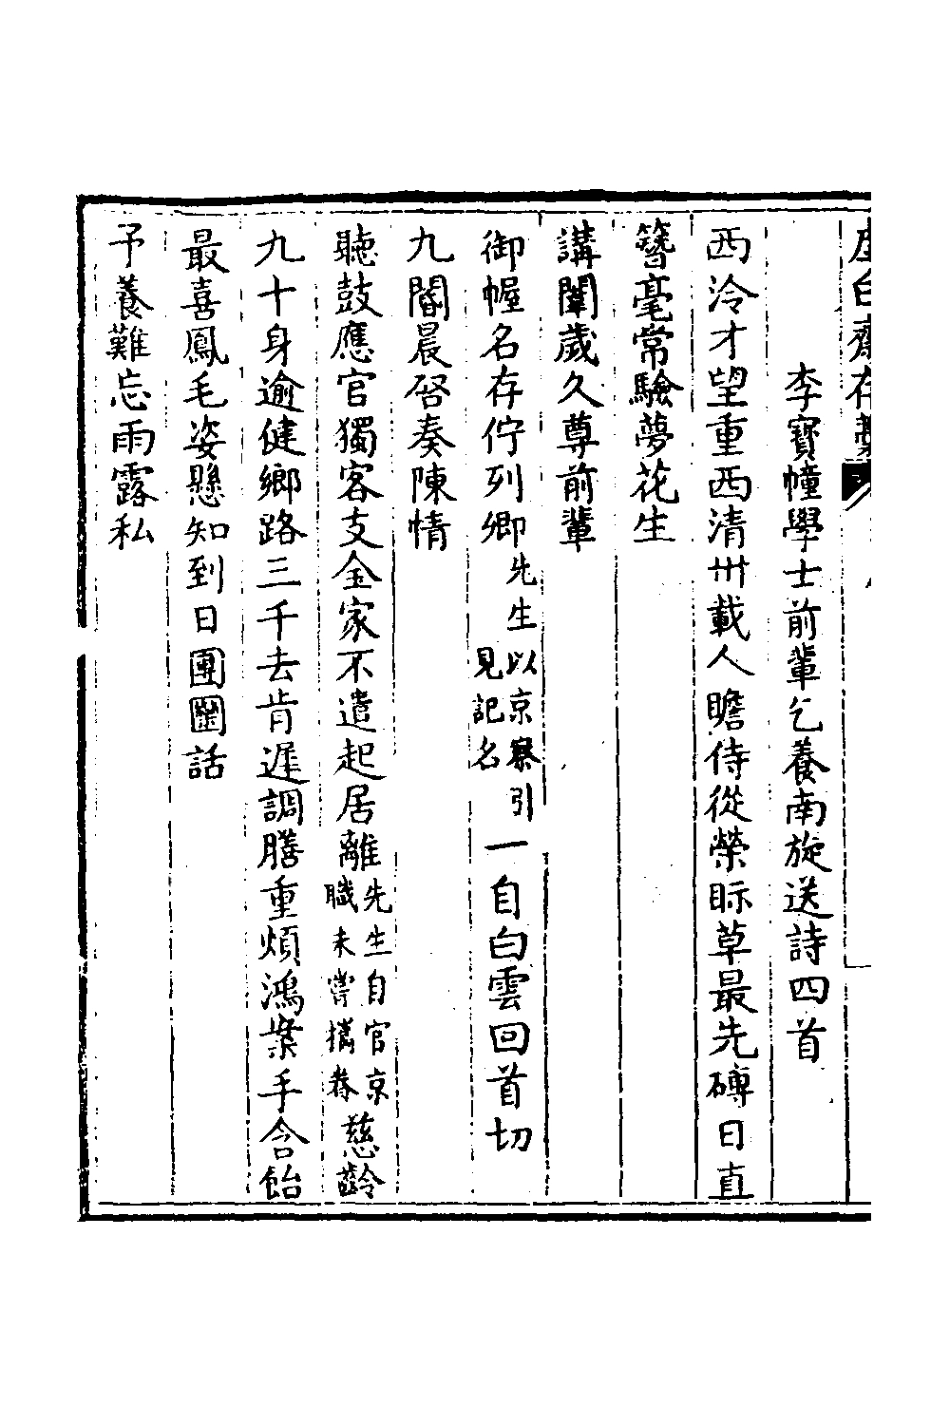 虛白齋存稾
李寶幢學士前輩乞養南旋送詩四首
西泠才望重西清卅載人瞻侍從榮眎草最先磚日直
簪毫常驗夢花生
講闈歲久尊前輩
御幄名存佇列卿先生以京察引見記名一自白雲回首切
九閽晨啓奏陳情
聽鼓應官獨客支全家不遣起居離先生自官京職未嘗攜眷慈齡
九十身逾健鄉路三千去肯遲調膳重煩鴻案手含飴
最喜鳳毛姿懸知到日團圞話
予養難忘雨露私